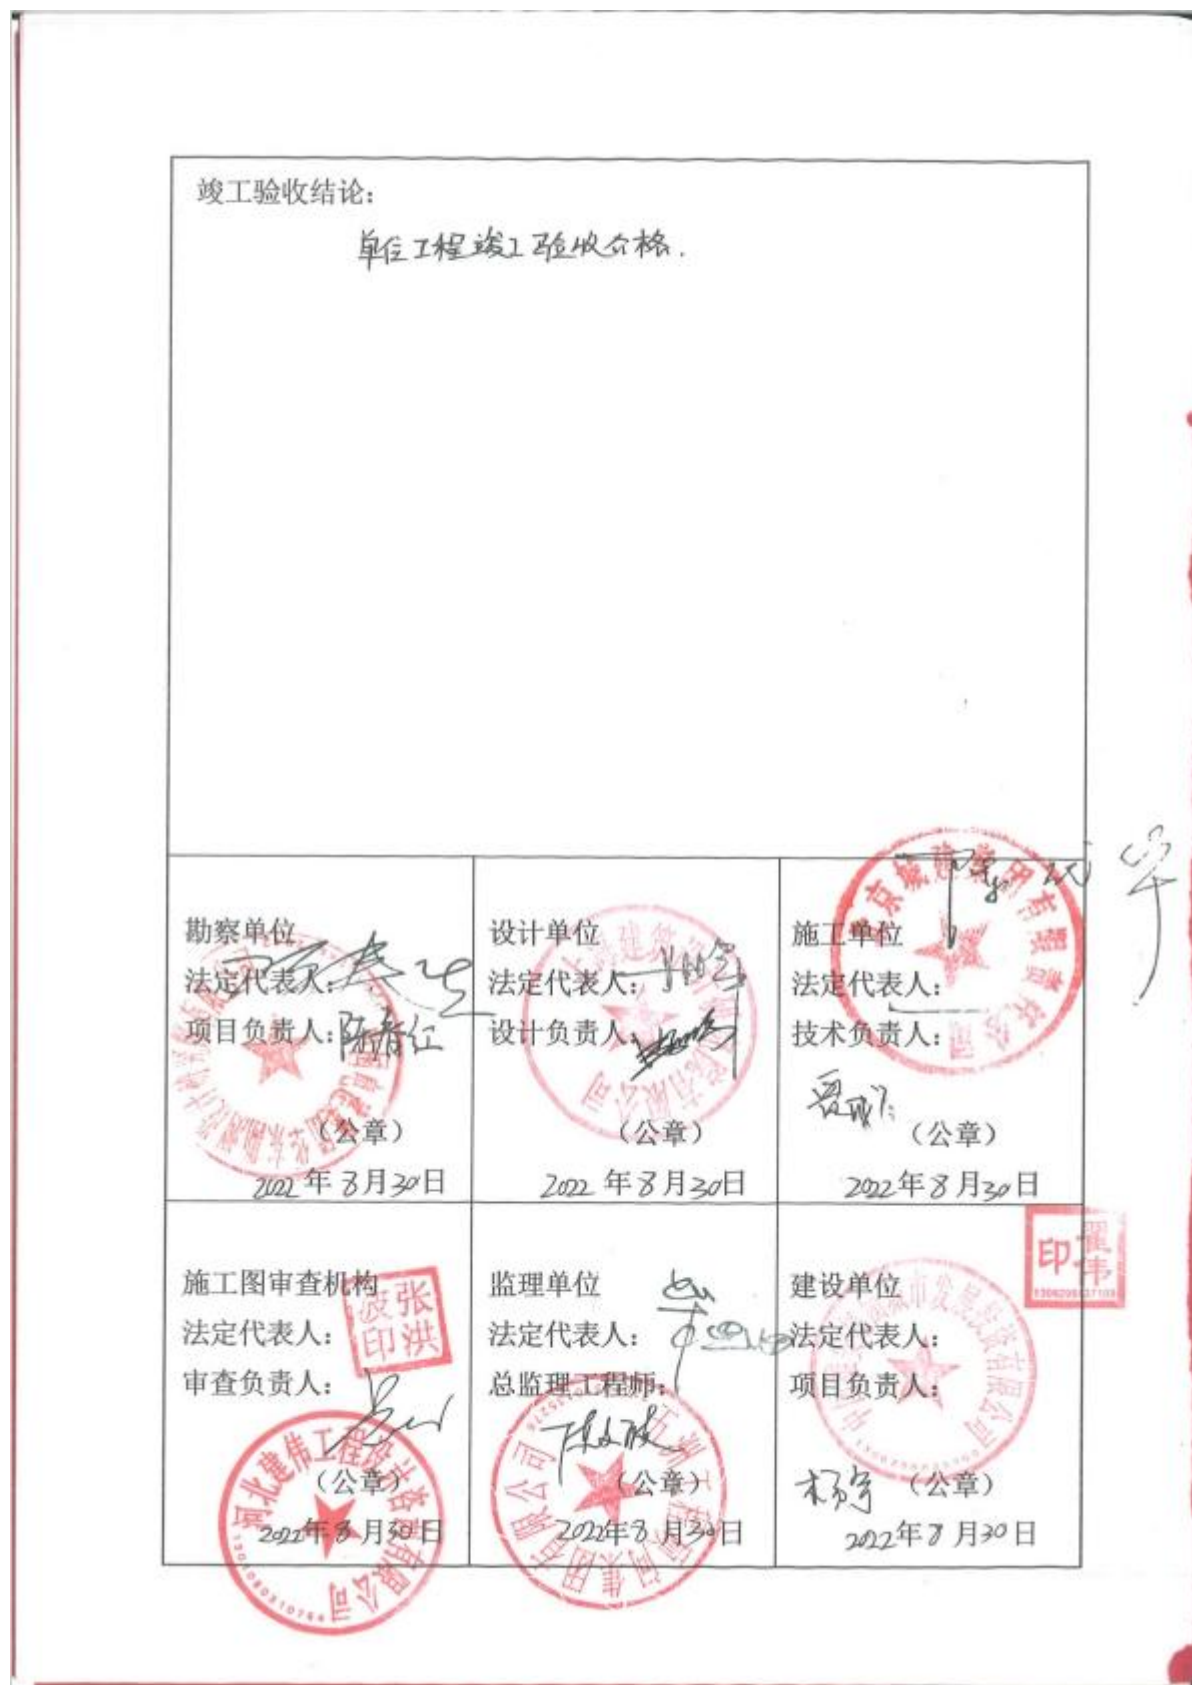 竣工验收结论：
单位工程竣工验收合格.
勘察单位
法定代表人：
项目负责人：陈春红
（公章）
2022年8月30日
设计单位
法定代表人：
设计负责人：
（公章）
2022年8月30日
施工单位
法定代表人：
技术负责人：
（公章）
2022年8月30日
施工图审查机构
法定代表人：
张洪波印
审查负责人：
（公章）
河北建伟工程设计咨询有限公司
2022年8月30日
监理单位
法定代表人：
总监理工程师：
（公章）
五洲工程顾问集团有限公司
2022年8月30日
建设单位
翟伟印
法定代表人：
项目负责人：
杨宇
（公章）
2022年8月30日